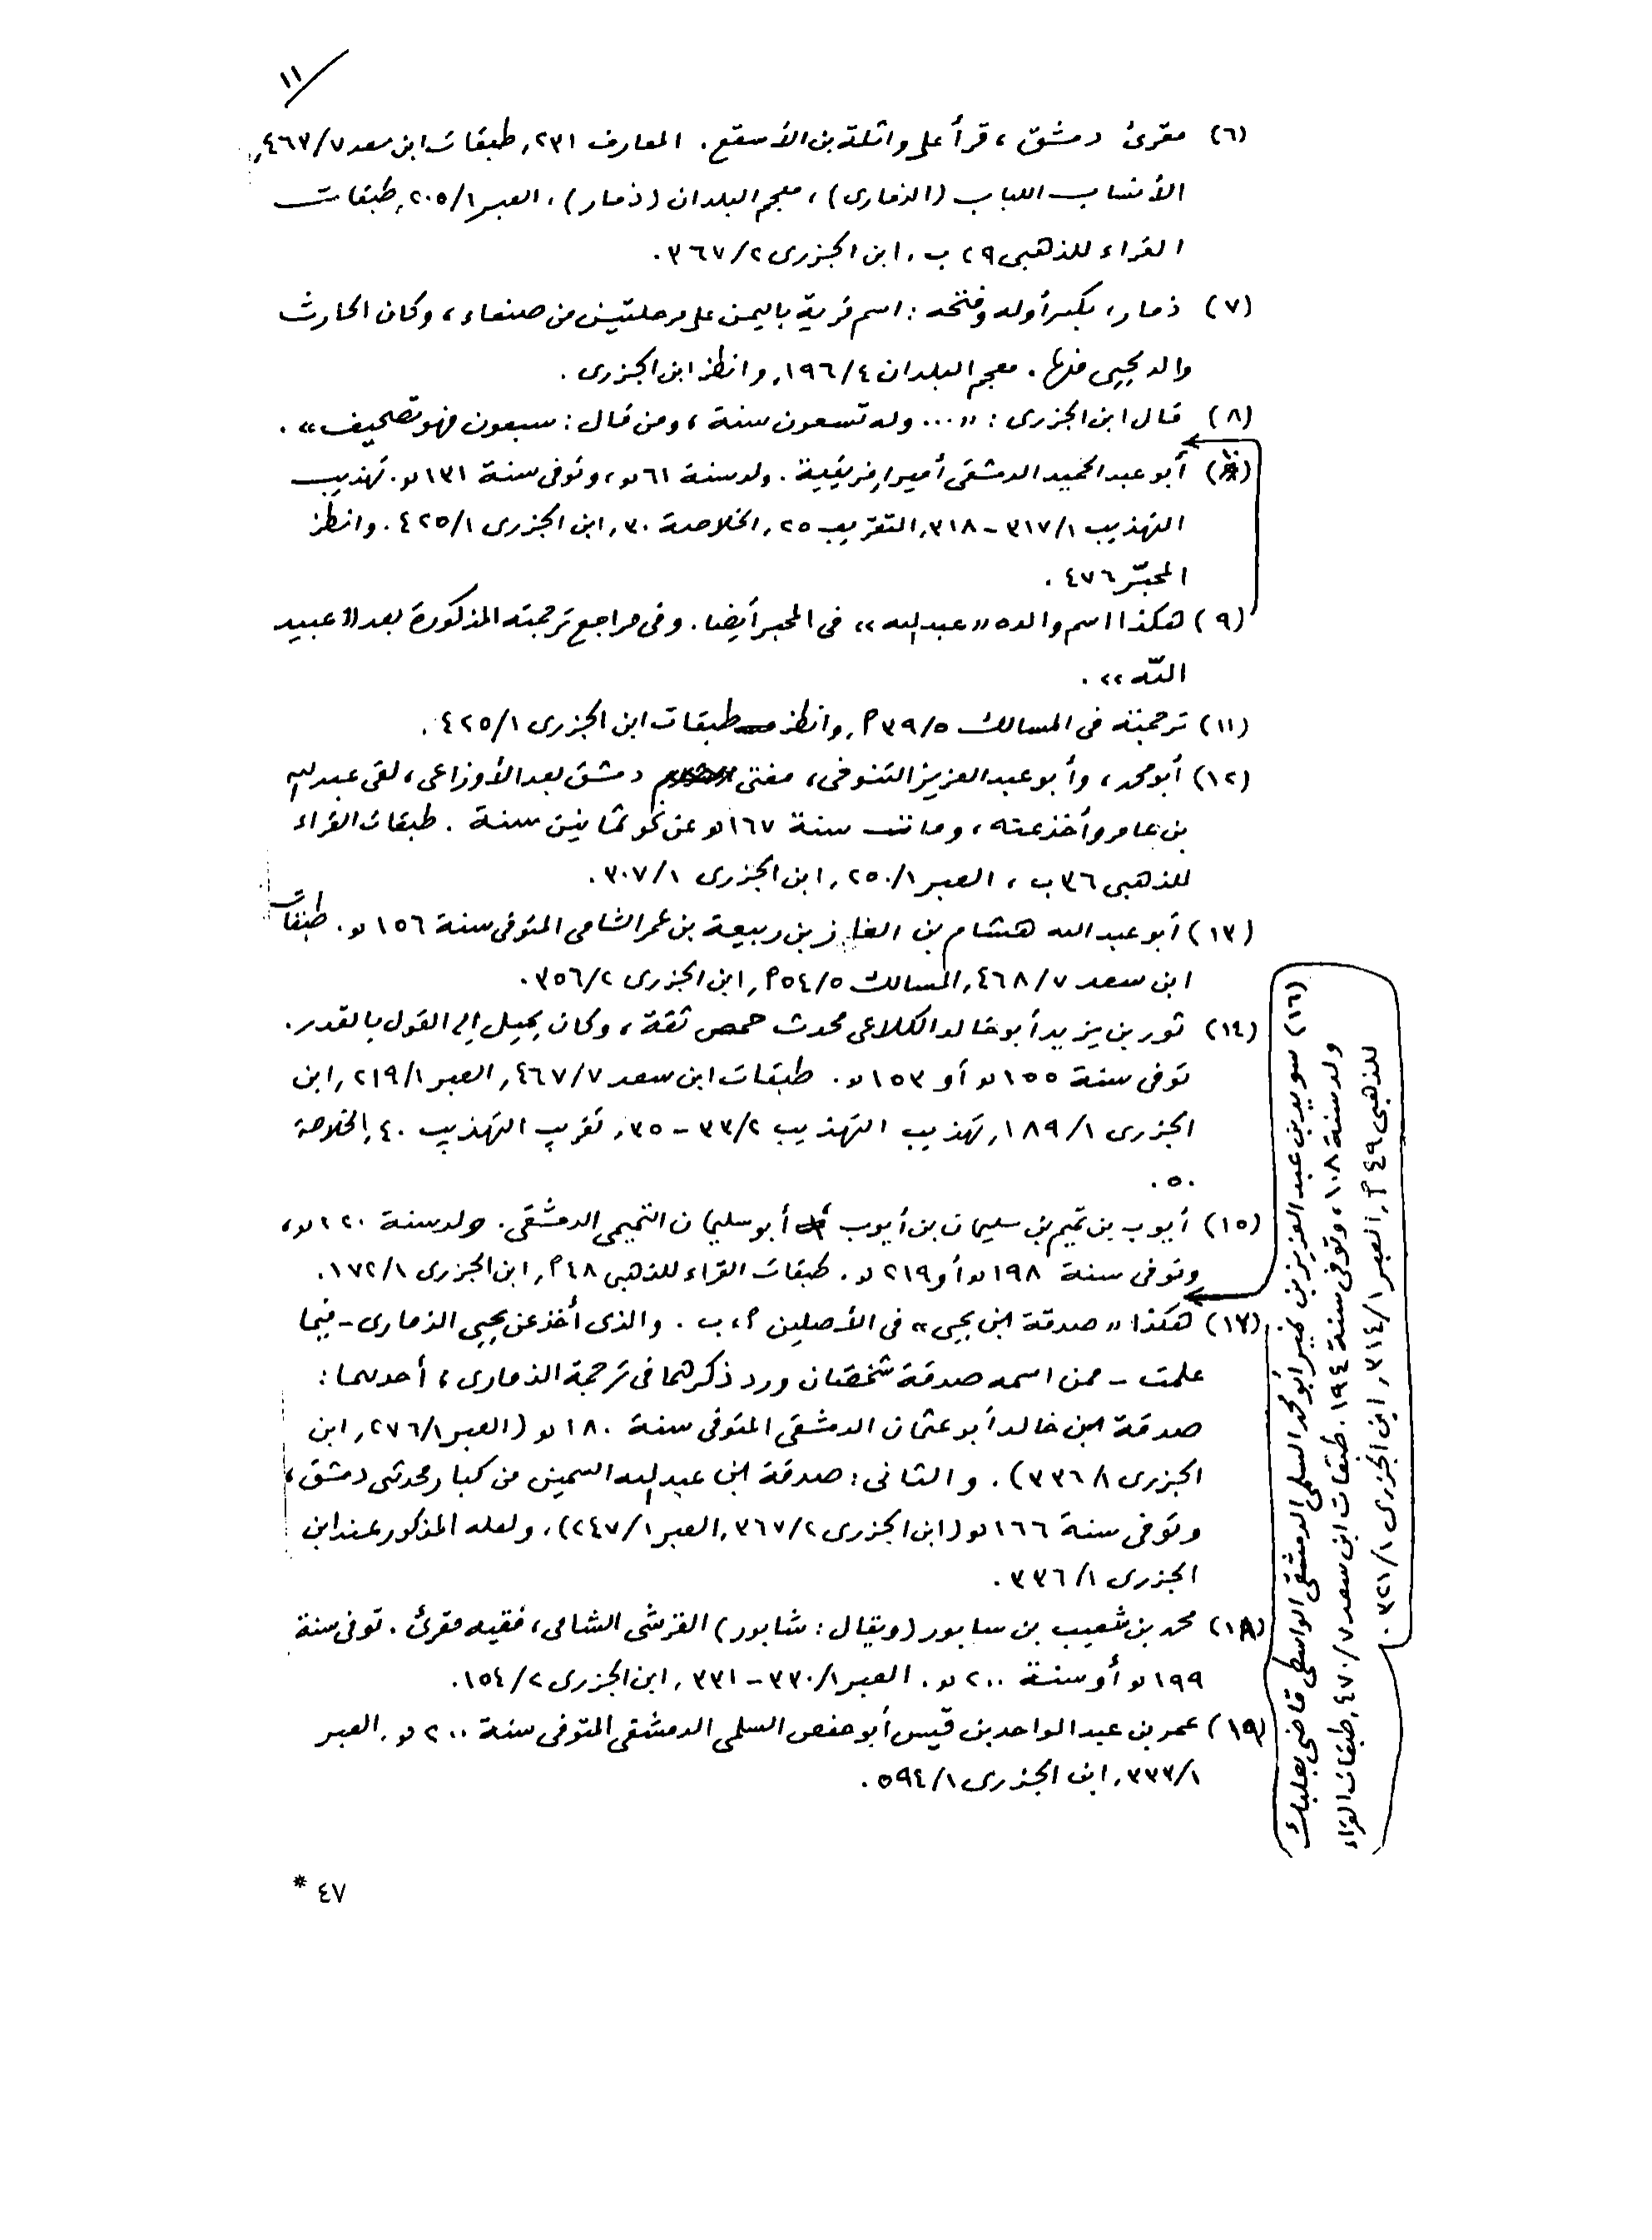 ١١
(٦) مقرئ دمشق، قرأ على واثلة بن الأسقع. المعارف ٢٣١، طبقات ابن سعد ٤٦٣/٧،
الأنساب اللباب (الذماري)، معجم البلدان (ذمار)، العبر ٢٠٥/١، طبقات
القراء للذهبى ٢٩ ب، ابن الجزرى ٣٦٧/٢.
(٧) ذمار، بكسر أوله وفتحه: اسم قرية باليمن على مرحلتين من صنعاء، وكان الحارث
والد يحيى منها. معجم البلدان ١٩٦/٤، وانظر ابن الجزرى.
(٨) قال ابن الجزرى: «... وله تسعون سنة، ومن قال: سبعون فهو تصحيف».
(١٠) أبو عبد الحميد الدمشقى أمير إفريقية. ولد سنة ٦١ هـ، وتوفى سنة ١٣١ هـ. تهذيب
التهذيب ٣١٧/١ - ٣١٨، التقريب ٢٥، الخلاصة ٣٠، ابن الجزرى ٤٢٥/١. وانظر
المحبّر ٤٧٦.
(٩) هكذا اسم والده «عبد الله» فى المحبر أيضا. وفى مراجع ترجمته المذكورة بعد «عبيد
اللّه».
(١١) ترجمته فى المسالك ٣٩/٥ م، وانظر طبقات ابن الجزرى ٤٢٥/١.
(١٢) أبو محمد، وأبو عبد العزيز التنوخى، مفتى دمشق بعد الأوزاعى، لقى عبد الله
بن عامر وأخذ عنه، ومات سنة ١٦٧ هـ عن نحو ثمانين سنة. طبقات القراء
للذهبى ٣٦ ب، العبر ٢٥٠/١، ابن الجزرى ٣٠٧/١.
(١٣) أبو عبد الله هشام بن الغاز بن ربيعة بن عمر الشامى المتوفى سنة ١٥٦ هـ. طبقات
ابن سعد ٤٦٨/٧، المسالك ٥٤/٥ م، ابن الجزرى ٣٥٦/٢.
(١٤) ثور بن يزيد أبو خالد الكلاعى محدث حمص ثقة، وكان يميل إلى القول بالقدر.
توفى سنة ١٥٥ هـ أو ١٥٣ هـ. طبقات ابن سعد ٤٦٧/٧، العبر ٢١٩/١، ابن
الجزرى ١٨٩/١، تهذيب التهذيب ٣٣/٢ - ٣٥، تقريب التهذيب ٤٠، الخلاصة
٥٠.
(١٥) أيوب بن تميم بن سليمان بن أيوب أبو سليمان التميمى الدمشقى. ولد سنة ١٢٠ هـ،
وتوفى سنة ١٩٨ هـ أو ٢١٩ هـ. طبقات القراء للذهبى ٤٨ م، ابن الجزرى ١٧٢/١.
(١٦) سويد بن عبد العزيز بن نمير أبو محمد السلمى الدمشقى الواسطى قاضى بعلبك
ولد سنة ١٠٨، وتوفى سنة ١٩٤. طبقات ابن سعد ٤٧٠/٧، طبقات القراء
للذهبى ٤٩ م، العبر ٣١٤/١، ابن الجزرى ٣٢١/١.
(١٧) هكذا «صدقة ابن يحيى» فى الأصلين م، ب. والذى أخذ عن يحيى الذمارى - فيما
علمت - ممن اسمه صدقة شخصان ورد ذكرهما فى ترجمة الذمارى، أحدهما:
صدقة ابن خالد أبو عثمان الدمشقى المتوفى سنة ١٨٠ هـ (العبر ٢٧٦/١، ابن
الجزرى ٣٣٦/١). والثانى: صدقة ابن عبد الله السمين من كبار محدثى دمشق،
وتوفى سنة ١٦٦ هـ (ابن الجزرى ٣٦٧/٢، العبر ٢٤٧/١)، ولعله المذكور عند ابن
الجزرى ٣٣٦/١.
(١٨) محمد بن شعيب بن سابور (ويقال: شابور) القرشى الشامى، فقيه مقرئ. توفى سنة
١٩٩ هـ أو سنة ٢٠٠ هـ. العبر ٣٣٠/١ - ٣٣١، ابن الجزرى ١٥٤/٢.
(١٩) عمر بن عبد الواحد بن قيس أبو حفص السلمى الدمشقى المتوفى سنة ٢٠٠ هـ. العبر
٣٣٣/١، ابن الجزرى ٥٩٤/١.
٤٧ *